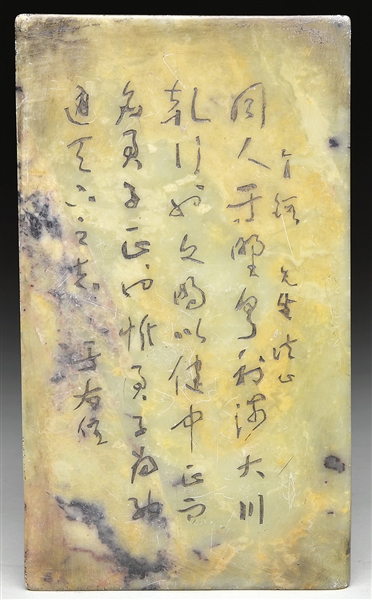 先生法正
同人于野亨利涉大川
乾行也文明以健中正而
應君子正也惟君子為能
通天下之志 于右任